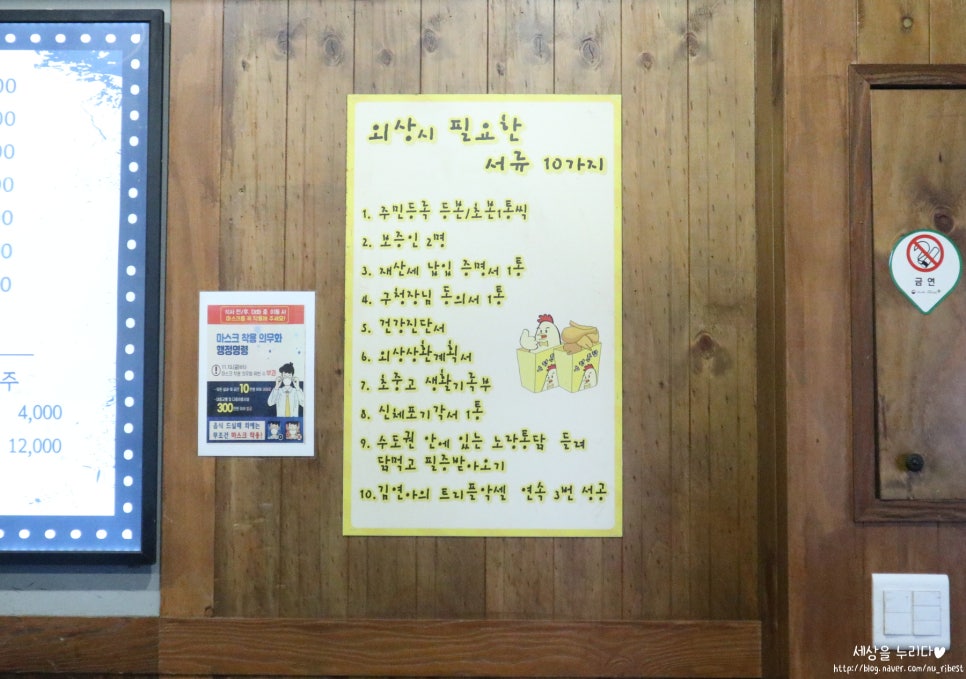 00
00
00
00
00
0
0
주
4,000
12,000
식사 전/후, 대화 중, 이동 시
마스크를 꼭 착용해 주세요!
마스크 착용 의무화
행정명령
10
300
음식 드실때 외에는
무조건 마스크 착용!
외상시 필요한
서류 10가지
1. 주민등록 등본/초본1통씩
2. 보증인 2명
3. 재산세 납입 증명서 1통
4. 구청장님 동의서 1통
5. 건강진단서
6. 외상상환계획서
7. 초중고 생활기록부
8. 신체포기각서 1통
9. 수도권 안에 있는 노랑통닭 들려
닭먹고 필증받아오기
10. 김연아의 트리플악셀 연속 3번 성공
금연
세상을 누리다♥
http://blog.naver.com/nu_ribest